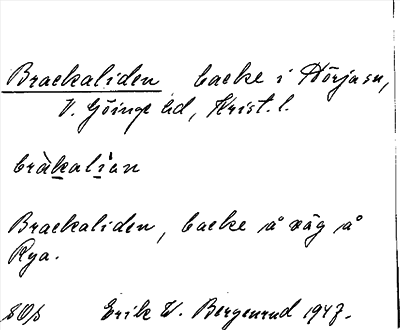 Brackaliden backe i Hörjasn,
V. Göinge hd, Krist. l.
bràkaliən
Brackaliden, backe å väg å
Rya.
sOs Erik W. Bergenrud 1947.